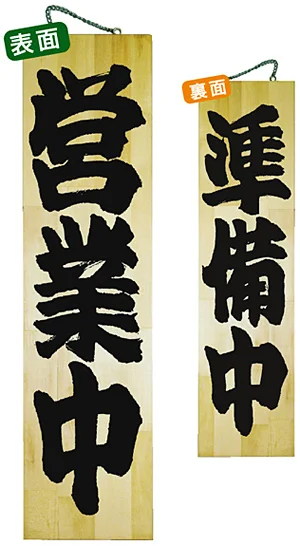 表面
営業中
裏面
準備中